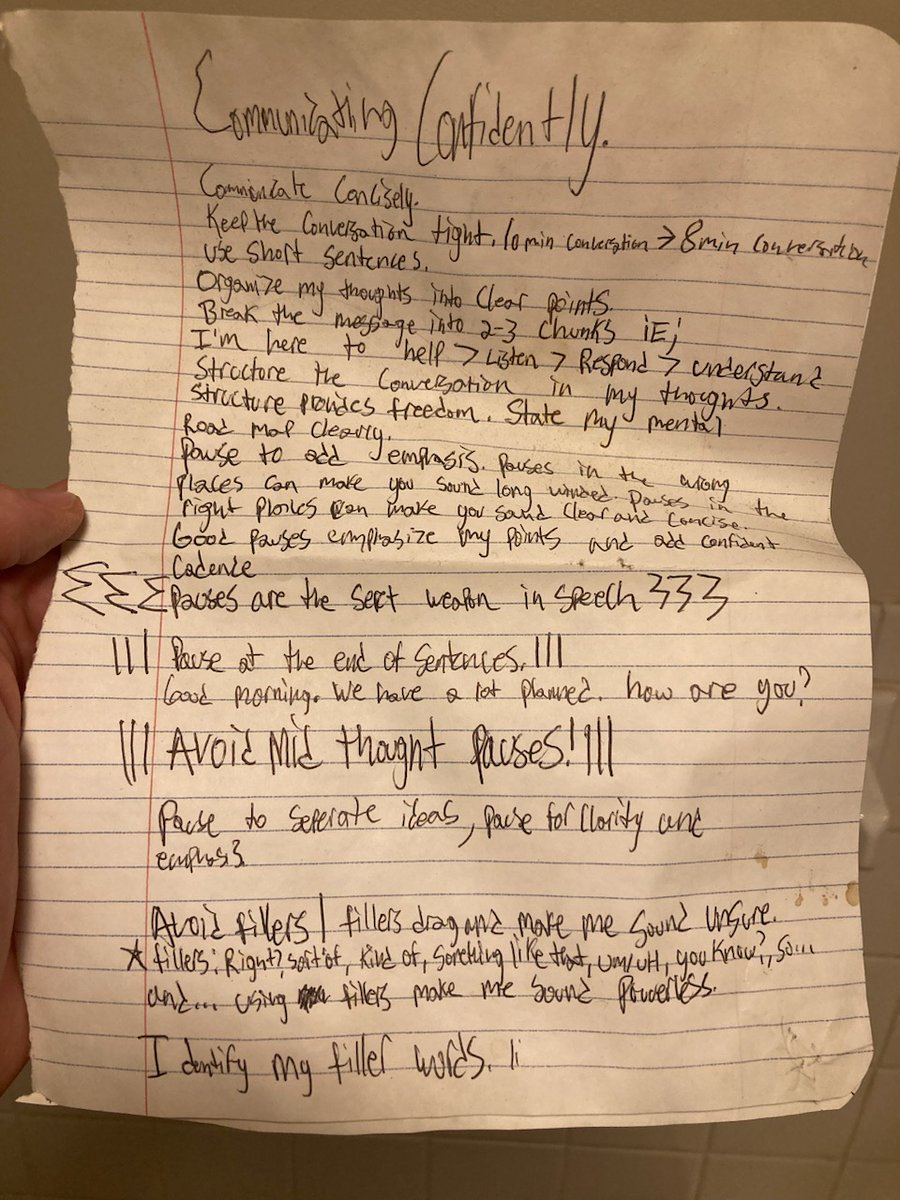 Communicating Confidently.
Communicate Concisely.
Keep the Conversation tight. 10 min conversation > 8 min conversation
Use Short Sentences.
Organize my thoughts into Clear points.
Break the message into 2-3 Chunks iE;
I'm here to help > Listen > Respond > understand
Structure the Conversation in my thoughts.
Structure provides freedom. State my mental
Road Map Clearly.
Pause to add emphasis. Pauses in the wrong
places can make you sound long winded. Pauses in the
right places can make you sound Clear and Concise.
Good pauses emphasize my points and add confident
Cadence
Pauses are the Sept weapon in speech
||| Pause at the end of Sentences. |||
Good morning. We have a lot planned. how are you?
||| AVoid Mid thought Pauses! |||
Pause to Seperate ideas, pause for Clarity and
emphasis.
Avoid fillers / fillers drag and make me Sound Unsure.
★ fillers: Right?, sort of, Kind of, something like that, um/uH, you Know?, So...
and... using fillers make me Sound Powerless.
Identify my filler words. li